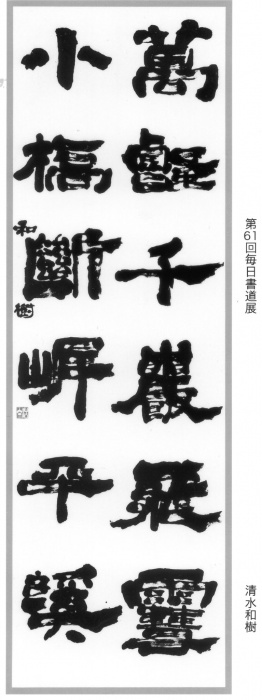 萬壑千巖雪
小橋斷岸平溪
和樹
第61回毎日書道展
清水和樹